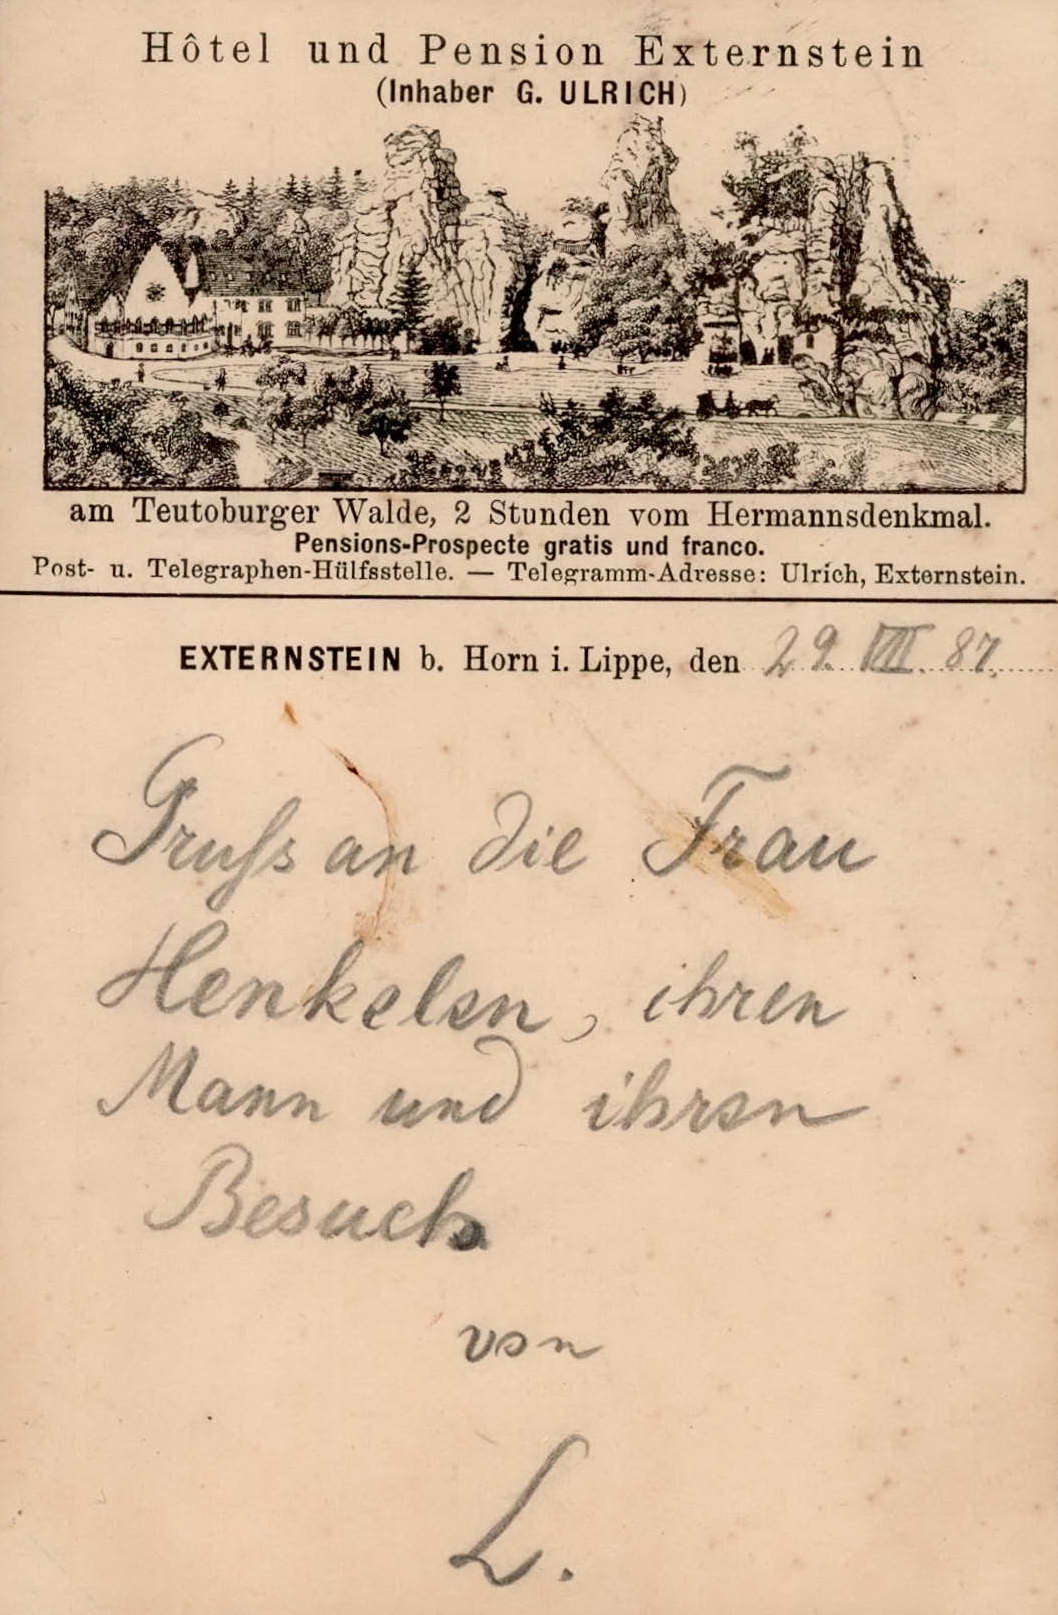 Hôtel und Pension Externstein
(Inhaber G. ULRICH)
am Teutoburger Walde, 2 Stunden vom Hermannsdenkmal.
Pensions-Prospecte gratis und franco.
Post- u. Telegraphen-Hülfsstelle. — Telegramm-Adresse: Ulrich, Externstein.
EXTERNSTEIN b. Horn i. Lippe, den 29. VII. 87.
Gruſs an die Frau
Henkelsn, ihren
Mann und ihren
Besuch
von
L.